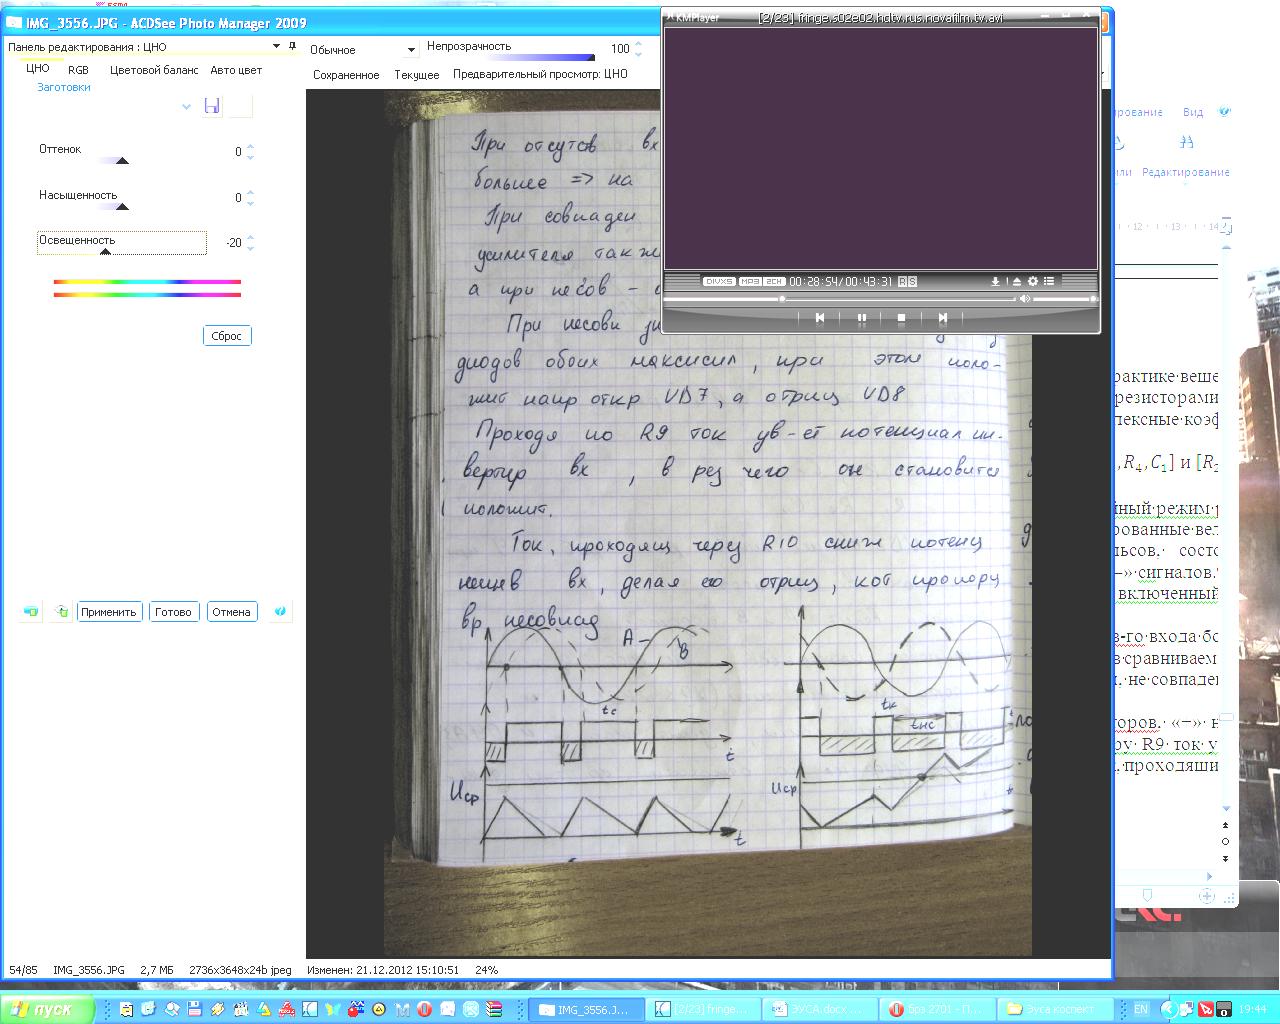 IMG_3556.JPG - ACDSee Photo Manager 2009
Панель редактирования : ЦНО
ЦНО RGB Цветовой баланс Авто цвет
Заготовки
Оттенок 0
Насыщенность 0
Освещенность -20
Сброс
Применить Готово Отмена
Обычное Непрозрачность 100
Сохраненное Текущее Предварительный просмотр: ЦНО
KMPlayer [2/23] fringe.s02e02.hdtv.rus.novafilm.tv.avi
DIVX5 MP3 2CH 00:28:54/00:43:31 R S
При отсутсв вх
большее => на
При совпаден
усилителя такж
а при несов -
При несовп
диодов обоих максисил, при этом поло-
жит напр откр VD7, а отриц VD8
Проходя по R9 ток ув-ет потенциал ин-
вертир вх, в рез чего он становится
положит.
Ток, проходящ через R10 сниж потенц
неинв вх, делая его отриц, кот пропорц
вр несовпад
A B
tс tк
tнс
t t
Uср Uср
t t
ирование Вид
или Редактирование
12 13 14
рактике веше
резисторами
лексные коэф
,R4,C1] и [R
ный режим р
рованные вел
льсов. состо
–» сигналов.
включенный
в-го входа бо
в сравниваем
, не совпаден
торов. «–» н
ру R9 ток у
, проходяши
54/85 IMG_3556.JPG 2,7 МБ 2736x3648x24b jpeg Изменен: 21.12.2012 15:10:51 24%
пуск IMG_3556.J... [2/23] fringe... ЭУСА.docx... Эуса коспект EN 19:44